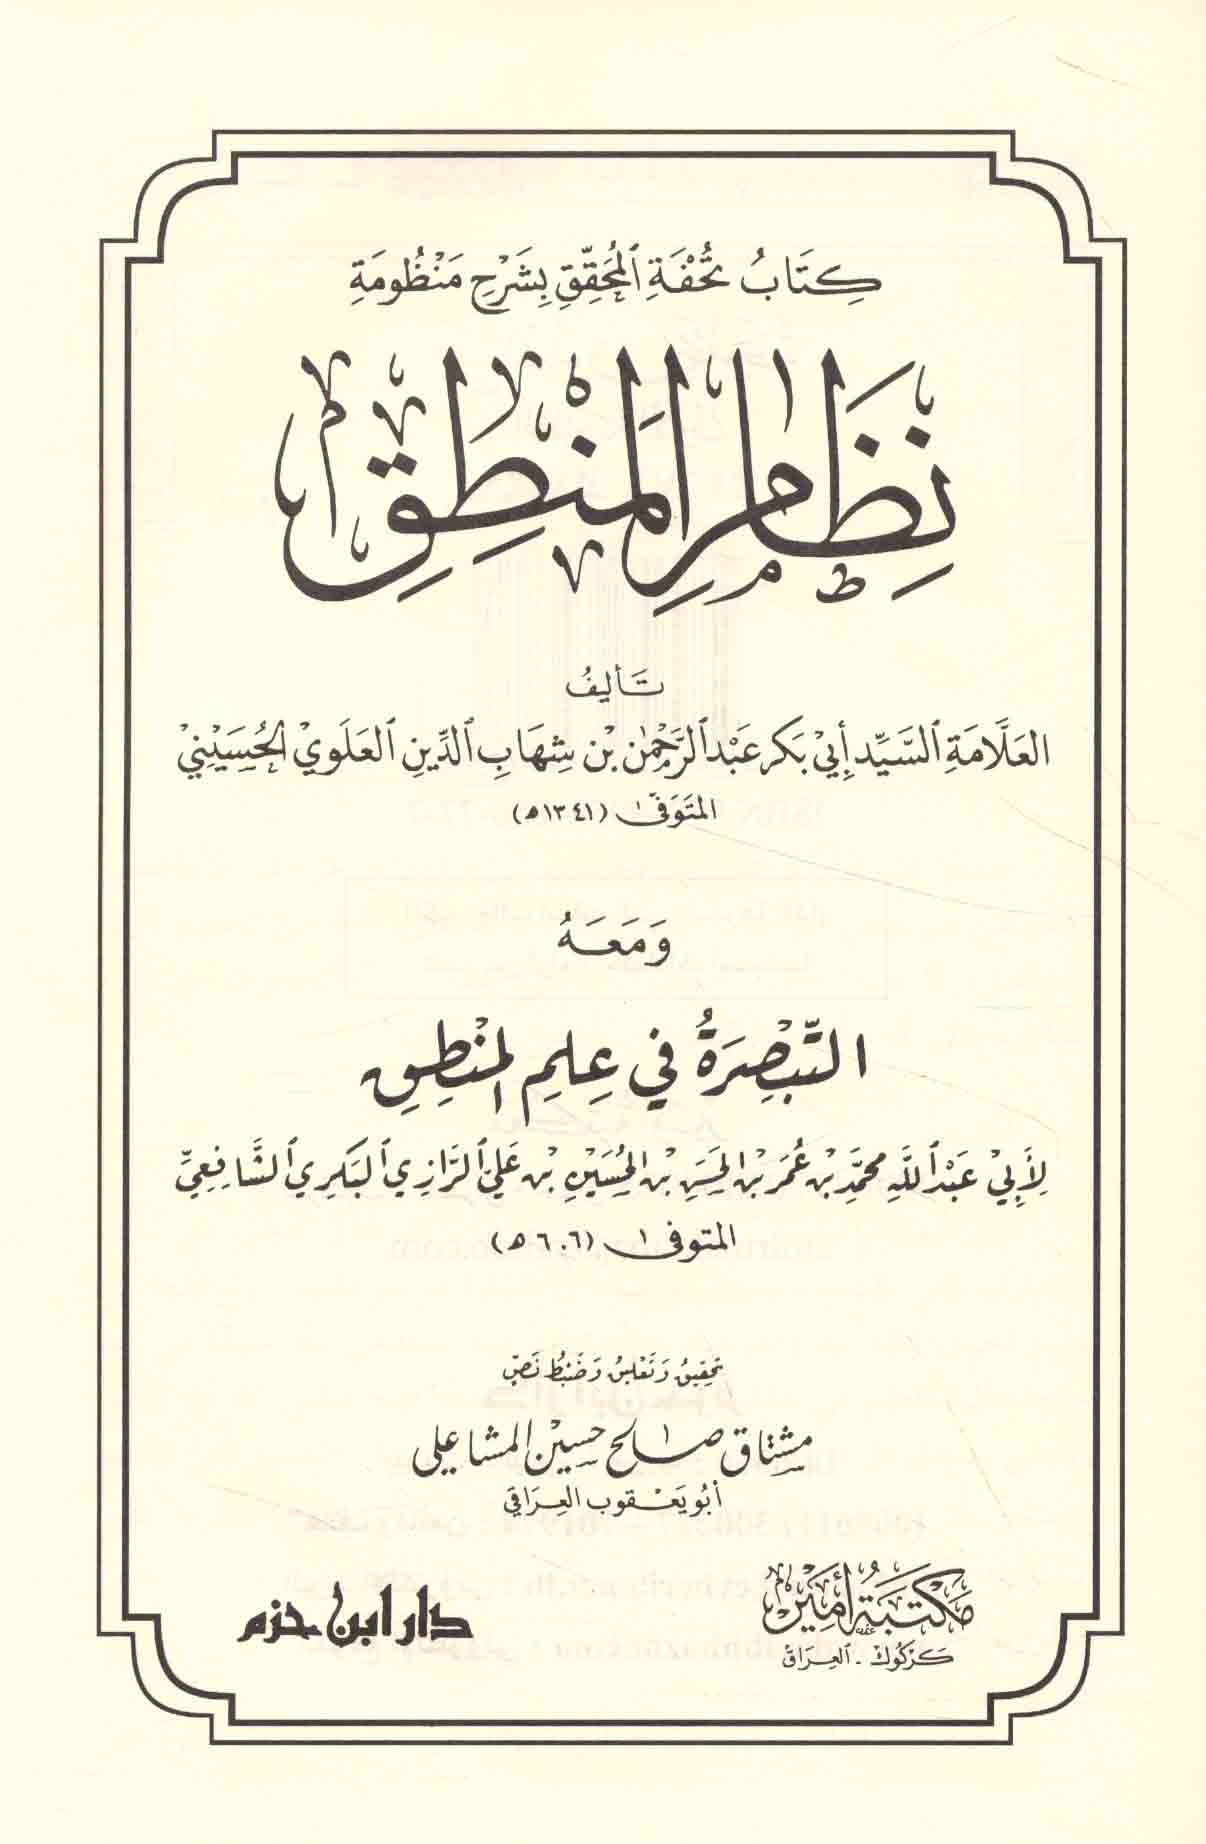 كِتَابُ تُحْفَةِ ٱلْمُحَقِّقِ بِشَرْحِ مَنْظُومَةِ
نِظَامِ المَنْطِقِ
تَأليفُ
العَلَّامَةِ ٱلسَّيِّدِ أَبِيْ بَكر عَبْدِ ٱلرَّحْمٰنِ بْنِ شِهَابِ ٱلدِّينِ ٱلعَلَوِيْ الحُسَيْنِيْ
المتَوَفىٰ (١٣٤١ھ)
وَمَعَهُ
التَّبْصِرَةُ فِي عِلمِ المَنْطِقِ
لِأَبِيْ عَبْدِ ٱللَّهِ محمَّدِ بْنِ عُمَرَ بْنِ الحَسَنِ بْنِ الحُسَيْنِ بْنِ عَلِيّ ٱلرَّازِي ٱلبَكرِي ٱلشَّافِعِيِّ
المتوفىٰ (٦٠٦ھ)
تحقِيقُ وَتَعْلِيسُ وَضَبْطُ نَصِّ
مشتاق صالح حسين المشاعلي
أبُو يَعْقوب العِرَاقي
مَكْتَبَةُ أَمِيْر
كَرْكُوك - العِرَاق
دار ابن حزم